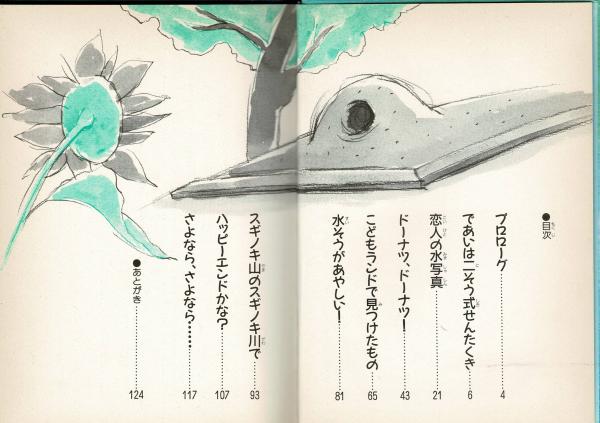 ●目次
プロローグ……4
であいは二そう式せんたくき……6
恋人の水写真……21
ドーナツ、ドーナツ！……43
こどもランドで見つけたもの……65
水そうがあやしい！……81
スギノキ山のスギノキ川で……93
ハッピーエンドかな？……107
さよなら、さよなら……………117
●あとがき……124